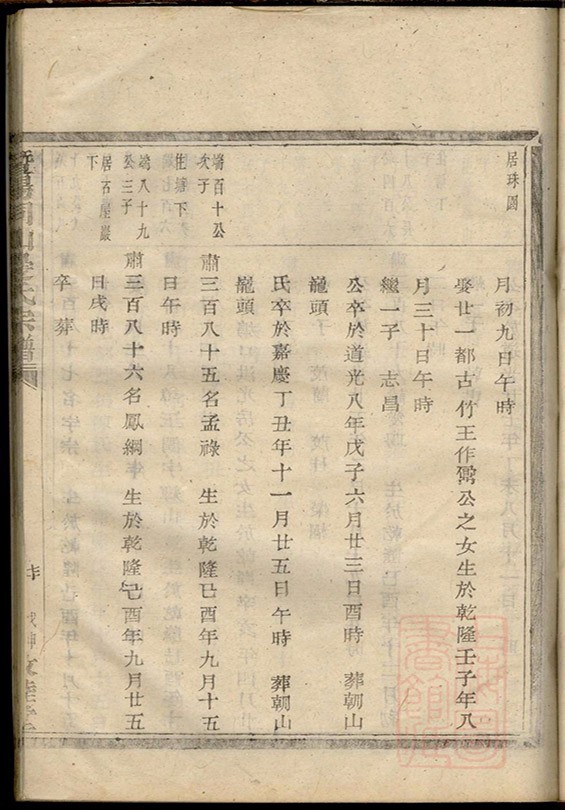 居珠園
月初九日午時
娶廿一都古竹王作霱公之女生於乾隆壬子年八
月三十日午時
繼一子 志昌
公卒於道光八年戊子六月廿三日酉時 葬朝山
龍頭
氏卒於嘉慶丁丑年十一月廿五日午時 葬朝山
龍頭
端百十公
次子
住塘下
肅三百八十五名孟祿 生於乾隆己酉年九月十五
日午時
端八十九
公三子
居石屋巖
下
肅三百八十六名鳳綱 生於乾隆己酉年九月廿五
日戌時
卒 葬
氏宗譜